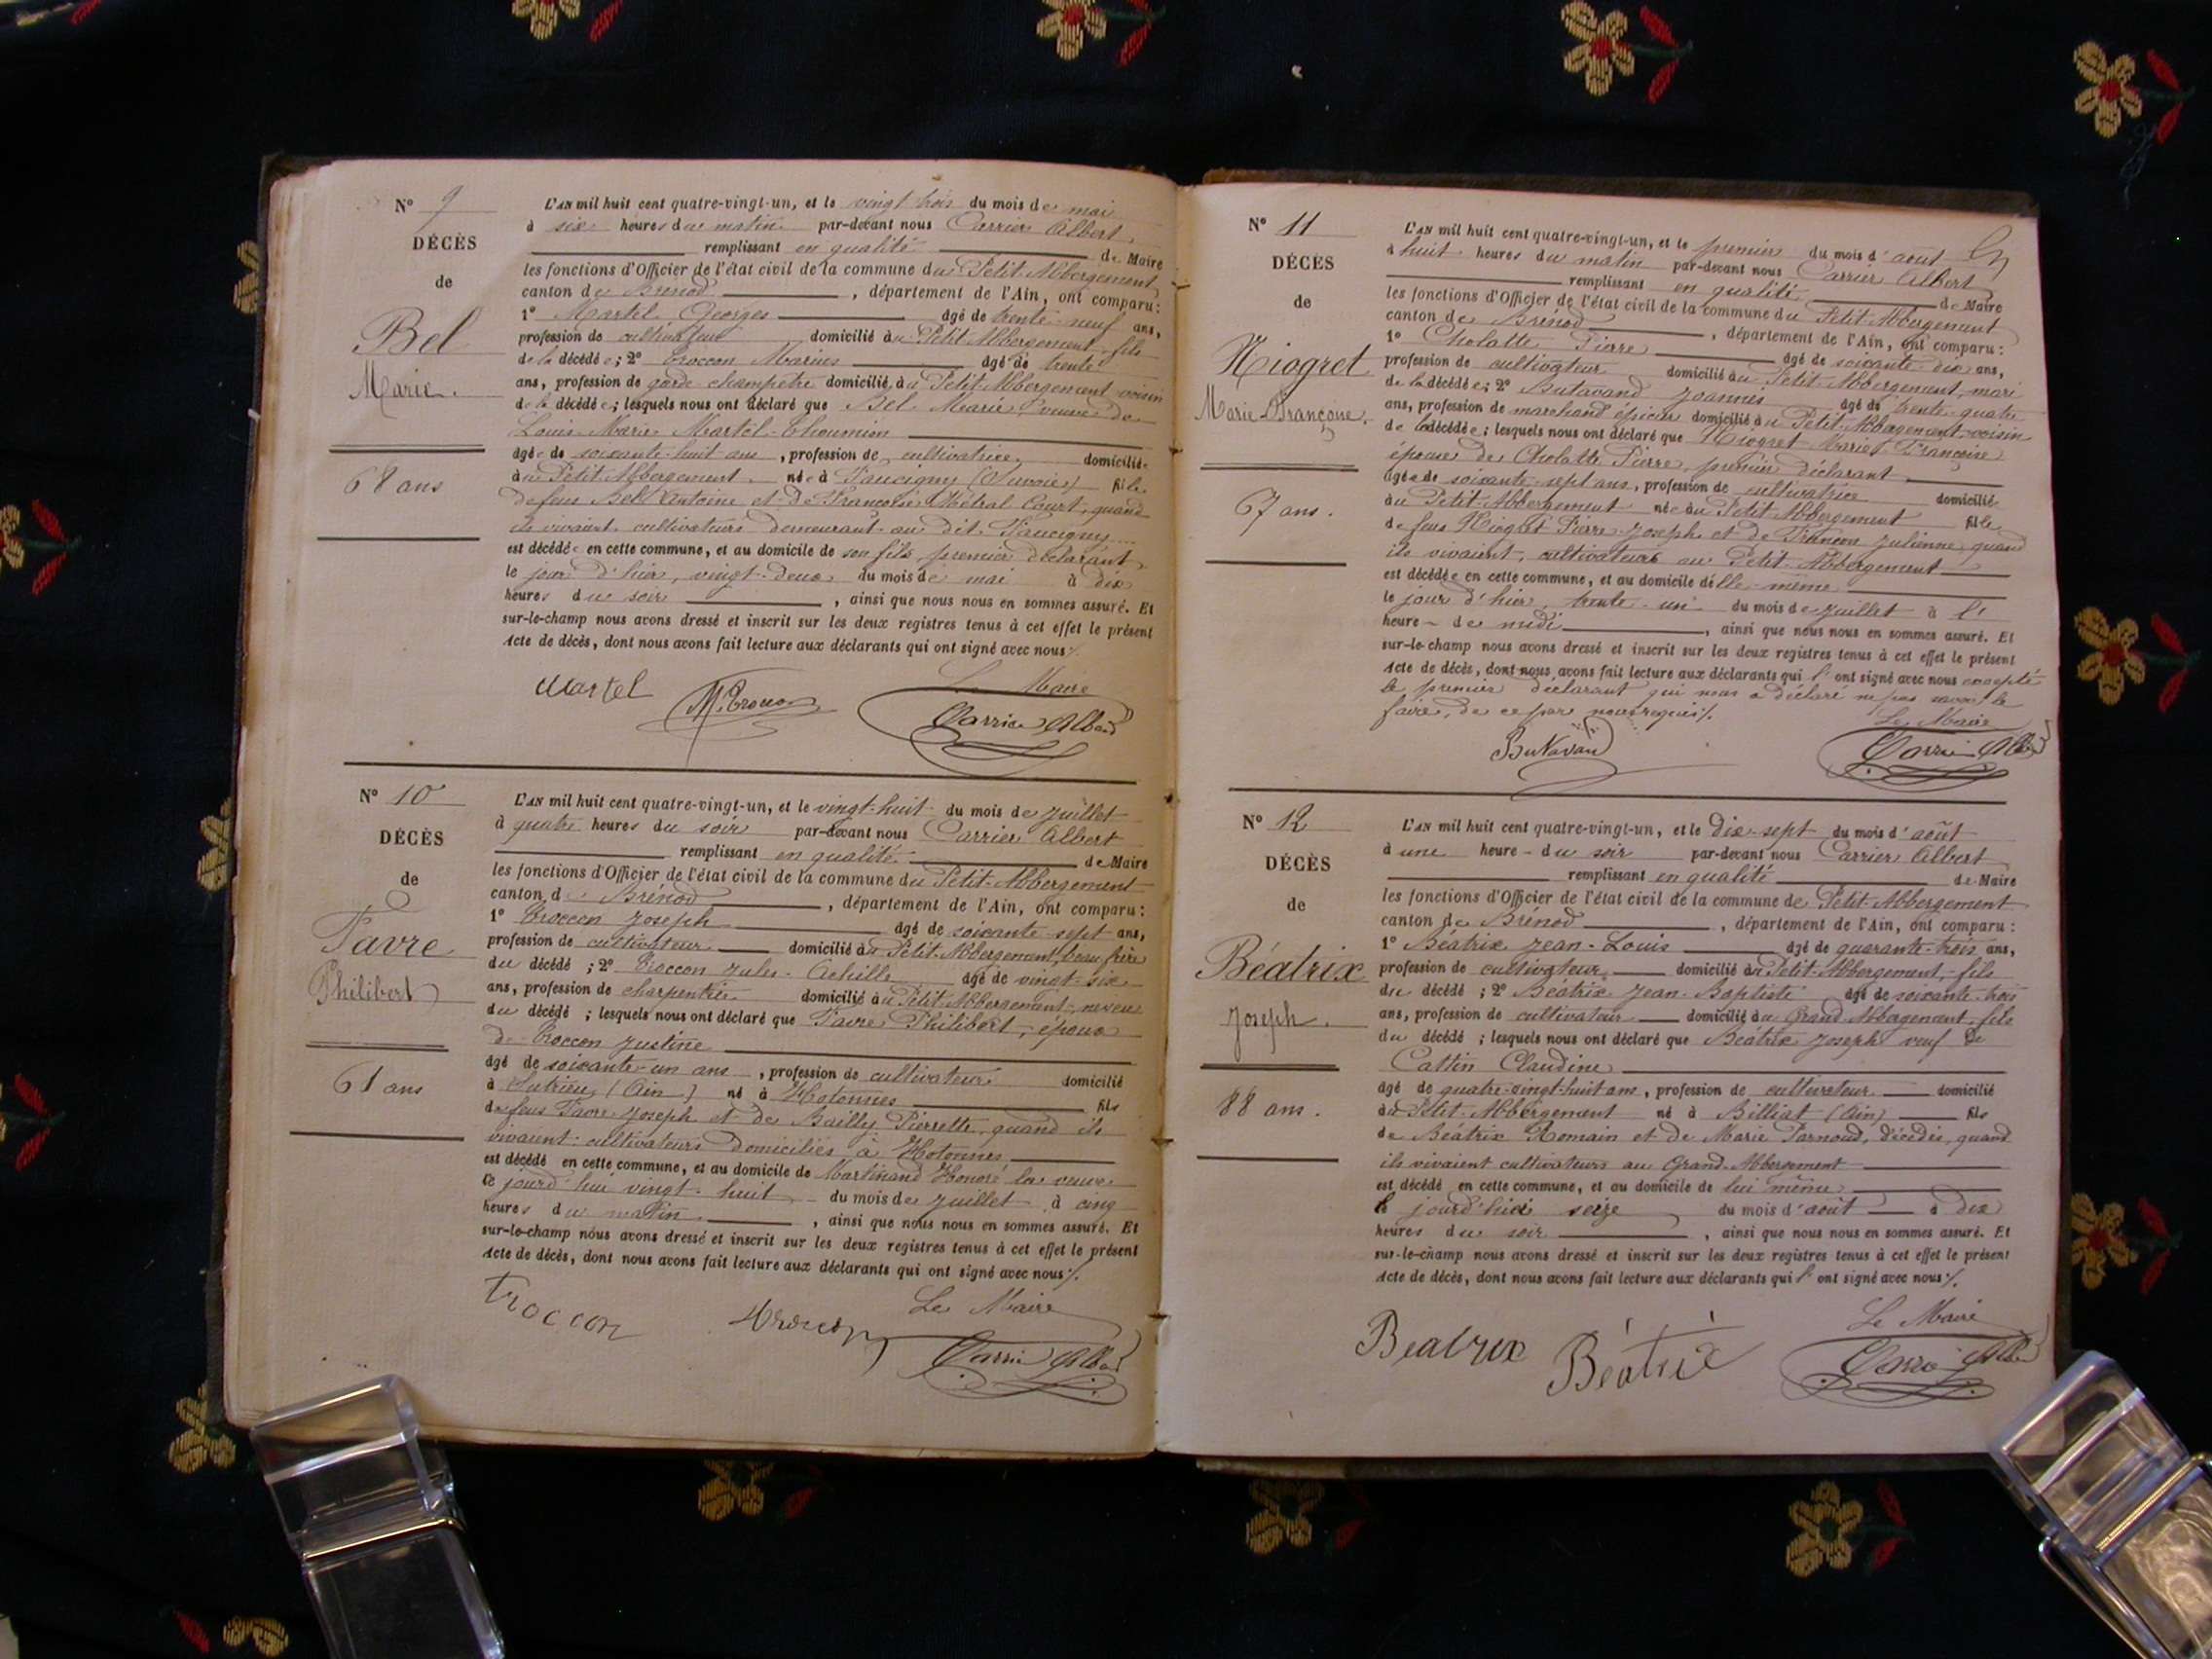 N° 9
DÉCÈS
de
Bel
Marie.
68 ans
L'AN mil huit cent quatre-vingt-un, et le vingt trois du mois de mai
à six heures du matin par-devant nous Carrier Albert
remplissant en qualité de Maire
les fonctions d'Officier de l'état civil de la commune du Petit Abbergement
canton de Brénod, département de l'Ain, ont comparu:
1° Martel Georges âgé de trente-neuf ans,
profession de cultivateur domicilié au Petit Abbergement, fils
de la décédée; 2° Troccon Marius âgé de trente
ans, profession de garde champêtre domicilié au Petit-Abbergement voisin
de la décédée; lesquels nous ont déclaré que Bel Marie veuve de
Louis Marie Martel-Thoumion
âgée de soixante-huit ans, profession de cultivatrice domiciliée
au Petit Abbergement née à Faucigny (Savoie) fille
de feus Bel Antoine et de Françoise Métral Court, quand
ils vivaient cultivateurs demeurant au dit Faucigny
est décédée en cette commune, et au domicile de son fils premier déclarant
le jour d'hier, vingt-deux du mois de mai à dix
heures du soir, ainsi que nous nous en sommes assuré. Et
sur-le-champ nous avons dressé et inscrit sur les deux registres tenus à cet effet le présent
acte de décès, dont nous avons fait lecture aux déclarants qui ont signé avec nous ./.
Le Maire
Martel M. Troccon Carrier Albert
N° 10
DÉCÈS
de
Favre
Philibert
61 ans
L'AN mil huit cent quatre-vingt-un, et le vingt-huit du mois de juillet
à quatre heures du soir par-devant nous Carrier Albert
remplissant en qualité de Maire
les fonctions d'Officier de l'état civil de la commune du Petit-Abbergement
canton de Brénod, département de l'Ain, ont comparu:
1° Troccon Joseph âgé de soixante-sept ans,
profession de cultivateur domicilié au Petit-Abbergement, beau frère
du décédé; 2° Troccon Jules-Achille âgé de vingt-six
ans, profession de charpentier domicilié au Petit Abbergement, neveu
du décédé; lesquels nous ont déclaré que Favre Philibert, époux
de Troccon Justine
âgé de soixante-un ans, profession de cultivateur domicilié
à Sutrieu (Ain) né à Hotonnes fils
de feus Favre Joseph et de Bailly Pierrette, quand ils
vivaient: cultivateurs domiciliés à Hotonnes
est décédé en cette commune, et au domicile de Martinand Honoré la veuve
ce jourd'hui vingt-huit du mois de juillet à cinq
heures du matin, ainsi que nous nous en sommes assuré. Et
sur-le-champ nous avons dressé et inscrit sur les deux registres tenus à cet effet le présent
acte de décès, dont nous avons fait lecture aux déclarants qui ont signé avec nous ./.
Le Maire
Troccon Troccon Carrier Albert
N° 11
DÉCÈS
de
Niogret
Marie Françoise.
67 ans.
L'AN mil huit cent quatre-vingt-un, et le premier du mois d'août
à huit heures du matin par-devant nous Carrier Albert
remplissant en qualité de Maire
les fonctions d'Officier de l'état civil de la commune du Petit Abbergement
canton de Brénod, département de l'Ain, ont comparu:
1° Cholatte Pierre âgé de soixante-dix ans,
profession de cultivateur domicilié au Petit Abbergement, mari
de la décédée; 2° Butavand Joannes âgé de trente-quatre
ans, profession de marchand épicier domicilié au Petit-Abbergement voisin
de la décédée; lesquels nous ont déclaré que Niogret Marie Françoise
épouse de Cholatte Pierre, premier déclarant
âgée de soixante-sept ans, profession de cultivatrice domiciliée
au Petit-Abbergement née au Petit-Abbergement fille
de feus Niogret Pierre-Joseph et de Françon Julienne, quand
ils vivaient, cultivateurs au Petit-Abbergement
est décédée en cette commune, et au domicile d'elle-même
le jour d'hier, trente-un du mois de juillet à l'
heure de midi, ainsi que nous nous en sommes assuré. Et
sur-le-champ nous avons dressé et inscrit sur les deux registres tenus à cet effet le présent
acte de décès, dont nous avons fait lecture aux déclarants qui l'ont signé avec nous excepté
le premier déclarant qui nous a déclaré ne pas savoir le
faire, de ce par nous requis ./.
Le Maire
Butavand Carrier Albert
N° 12
DÉCÈS
de
Béatrix
Joseph.
88 ans.
L'AN mil huit cent quatre-vingt-un, et le dix-sept du mois d'août
à une heure du soir par-devant nous Carrier Albert
remplissant en qualité de Maire
les fonctions d'Officier de l'état civil de la commune de Petit-Abbergement
canton de Brénod, département de l'Ain, ont comparu:
1° Béatrix Jean-Louis âgé de quarante-trois ans,
profession de cultivateur domicilié au Petit-Abbergement, fils
du décédé; 2° Béatrix Jean-Baptiste âgé de soixante-trois
ans, profession de cultivateur domicilié au Grand-Abbergement, fils
du décédé; lesquels nous ont déclaré que Béatrix Joseph veuf de
Cattin Claudine
âgé de quatre-vingt-huit ans, profession de cultivateur domicilié
au Petit-Abbergement né à Billiat (Ain) fils
de Béatrix Romain et de Marie Parnoud, décédés, quand
ils vivaient cultivateurs au Grand-Abbergement
est décédé en cette commune, et au domicile de lui même
le jourd'hier seize du mois d'août à dix
heures du soir, ainsi que nous nous en sommes assuré. Et
sur-le-champ nous avons dressé et inscrit sur les deux registres tenus à cet effet le présent
acte de décès, dont nous avons fait lecture aux déclarants qui l'ont signé avec nous ./.
Le Maire
Beatrix Béatrix Carrier Albert